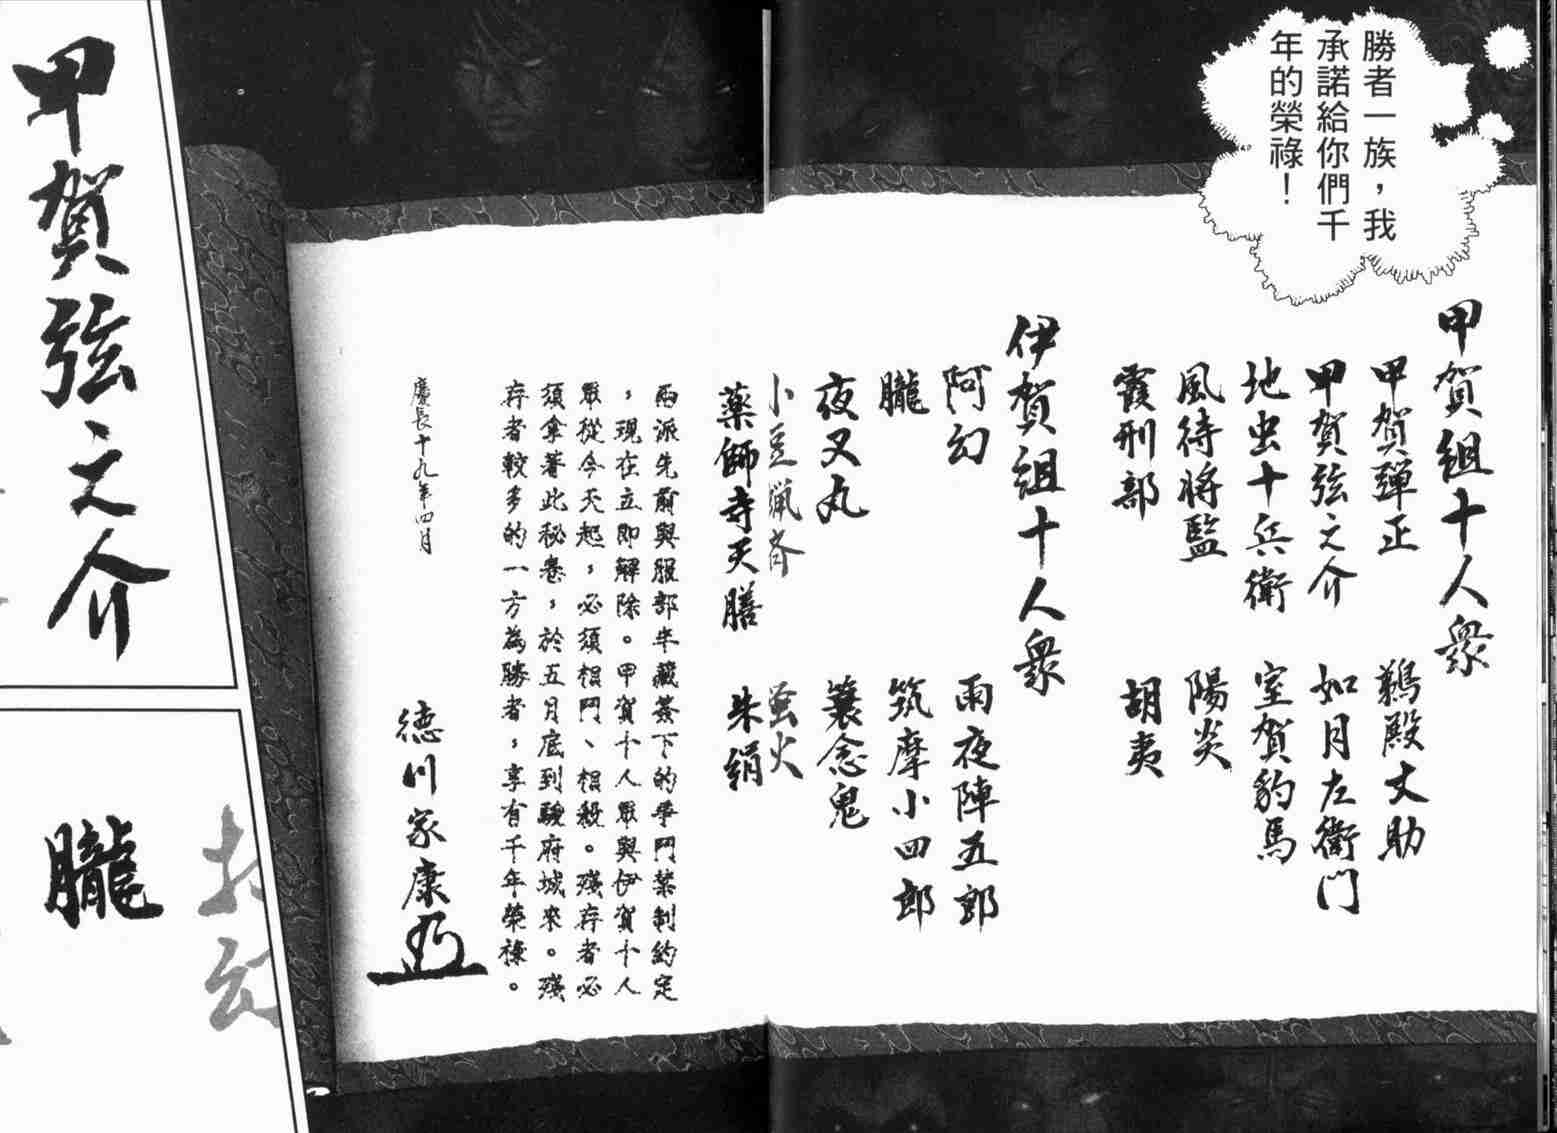 勝者一族，我
承諾給你們千
年的榮祿！
甲賀組十人衆
甲賀彈正
鵜殿丈助
甲賀弦之介
如月左衛門
地虫十兵衛
室賀豹馬
風待将監
陽炎
霞刑部
胡夷
伊賀組十人衆
阿幻
雨夜陣五郎
朧
筑摩小四郎
夜叉丸
蓑念鬼
小豆蝋斉
蛍火
薬師寺天膳
朱絹
兩派先前與服部半藏簽下的爭鬥禁制約定
，現在立即解除。甲賀十人眾與伊賀十人
眾從今天起，必須相鬥、相殺。殘存者必
須拿著此秘卷，於五月底到駿府城來。殘
存者較多的一方為勝者，享有千年榮祿。
慶長十九年四月
德川家康
甲賀弦之介
朧